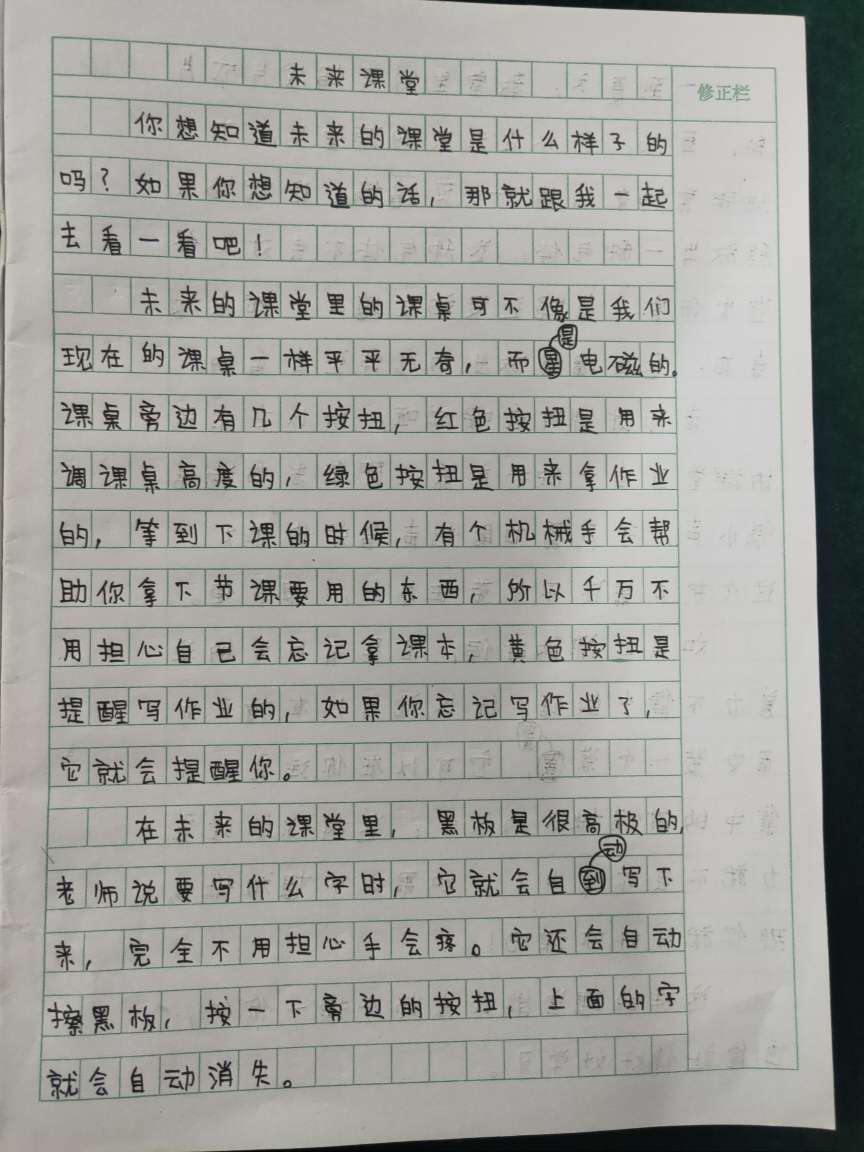 未来课堂
修正栏
你想知道未来的课堂是什么样子的
吗？如果你想知道的话，那就跟我一起
去看一看吧！
未来的课堂里的课桌可不像是我们
现在的课桌一样平平无奇，而是电磁的。
课桌旁边有几个按扭，红色按扭是用来
调课桌高度的，绿色按扭是用来拿作业
的，等到下课的时候，有个机械手会帮
助你拿下节课要用的东西，所以千万不
用担心自己会忘记拿课本，黄色按扭是
提醒写作业的，如果你忘记写作业了，
它就会提醒你。
在未来的课堂里，黑板是很高极的，
老师说要写什么字时，它就会自动写下
来，完全不用担心手会疼。它还会自动
擦黑板，按一下旁边的按扭，上面的字
就会自动消失。